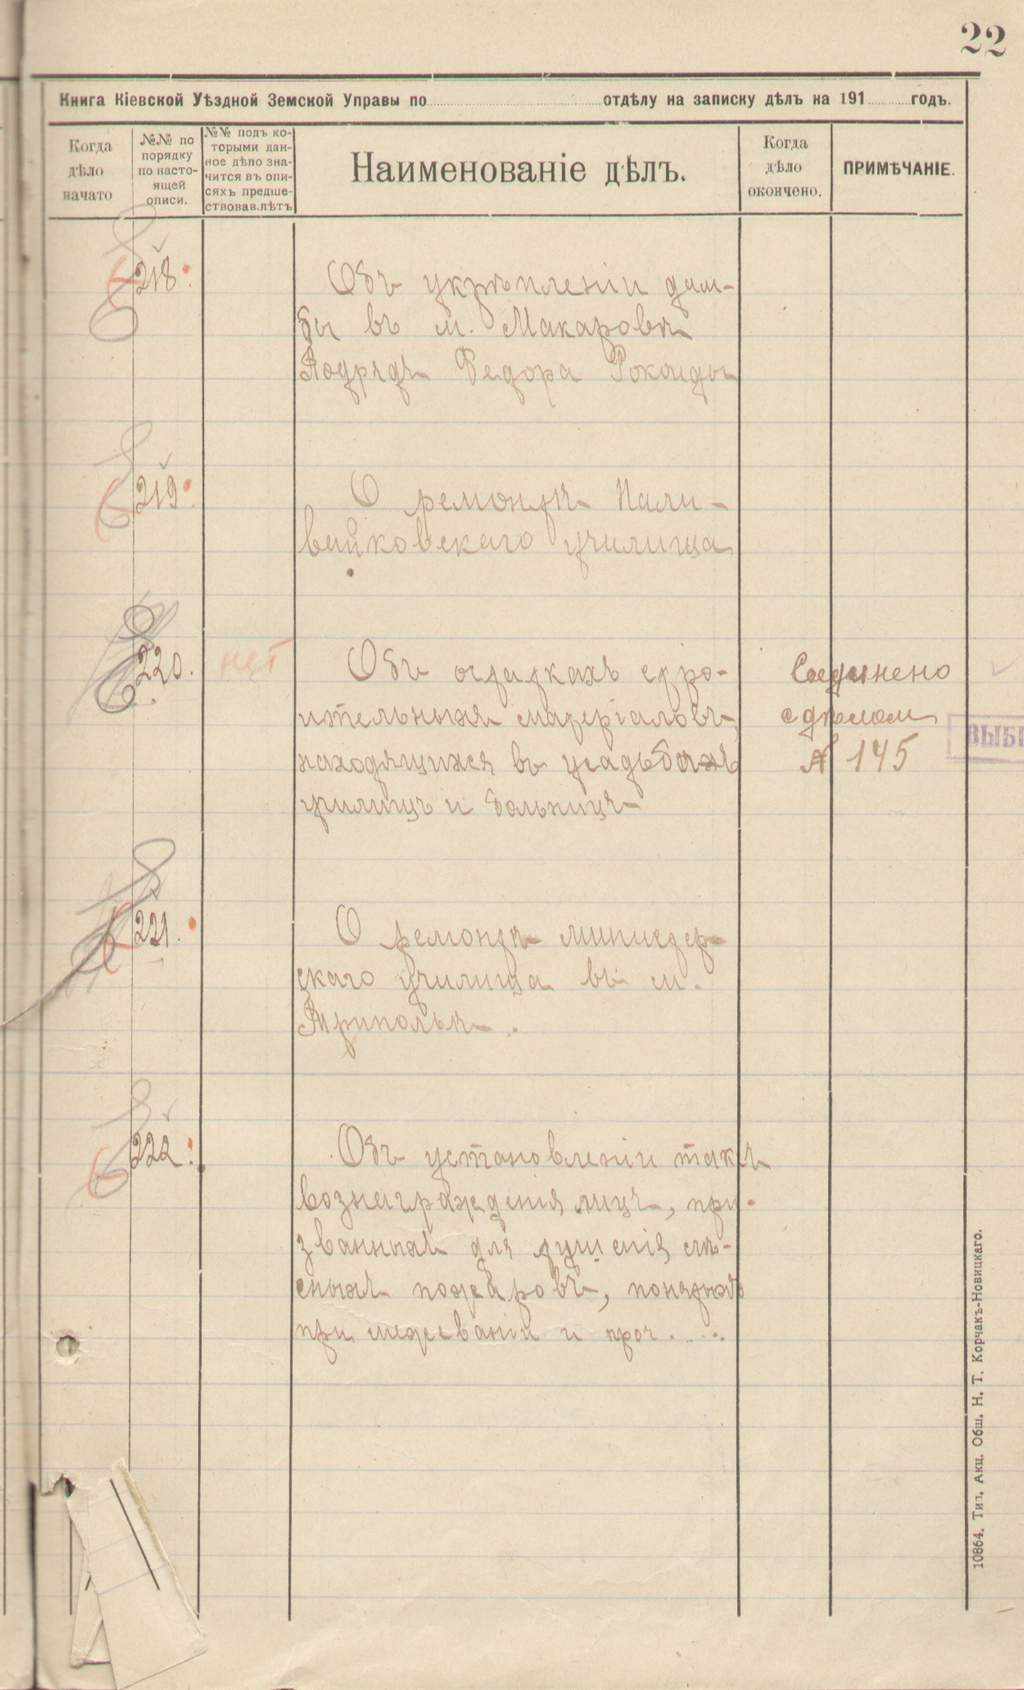 22
Книга Кіевской Уѣздной Земской Управы по отдѣлу на записку дѣлъ на 191 годъ.
Когда дѣло начато
№№ по порядку по насто- ящей описи.
№№ подъ ко- торыми дан- ное дѣло зна- чится въ опи- сяхъ предше- ствовав.лѣтъ
Наименованіе дѣлъ.
Когда дѣло окончено.
ПРИМѢЧАНІЕ.
218. Объ укрѣпленіи дам-
бы въ м. Макаровѣ
Подрядъ Федора
219. О ремонтѣ Нали-
вайковскаго училища
220. нет Объ остаткахъ стро- Соединено
ительныхъ матеріаловъ, с дѣломъ
находящихся въ усадьбахъ № 145
училищъ и больницъ
ВЫБ
221. О ремонтѣ министер-
скаго училища въ м.
Триполье.
222. Объ установленіи таксъ
вознагражденія лицъ, при-
званныхъ для тушенія лѣ-
сныхъ пожаровъ, понятыхъ
при и проч.....
10864. Тип. Акц. Общ. Н. Т. Корчакъ-Новицкаго.